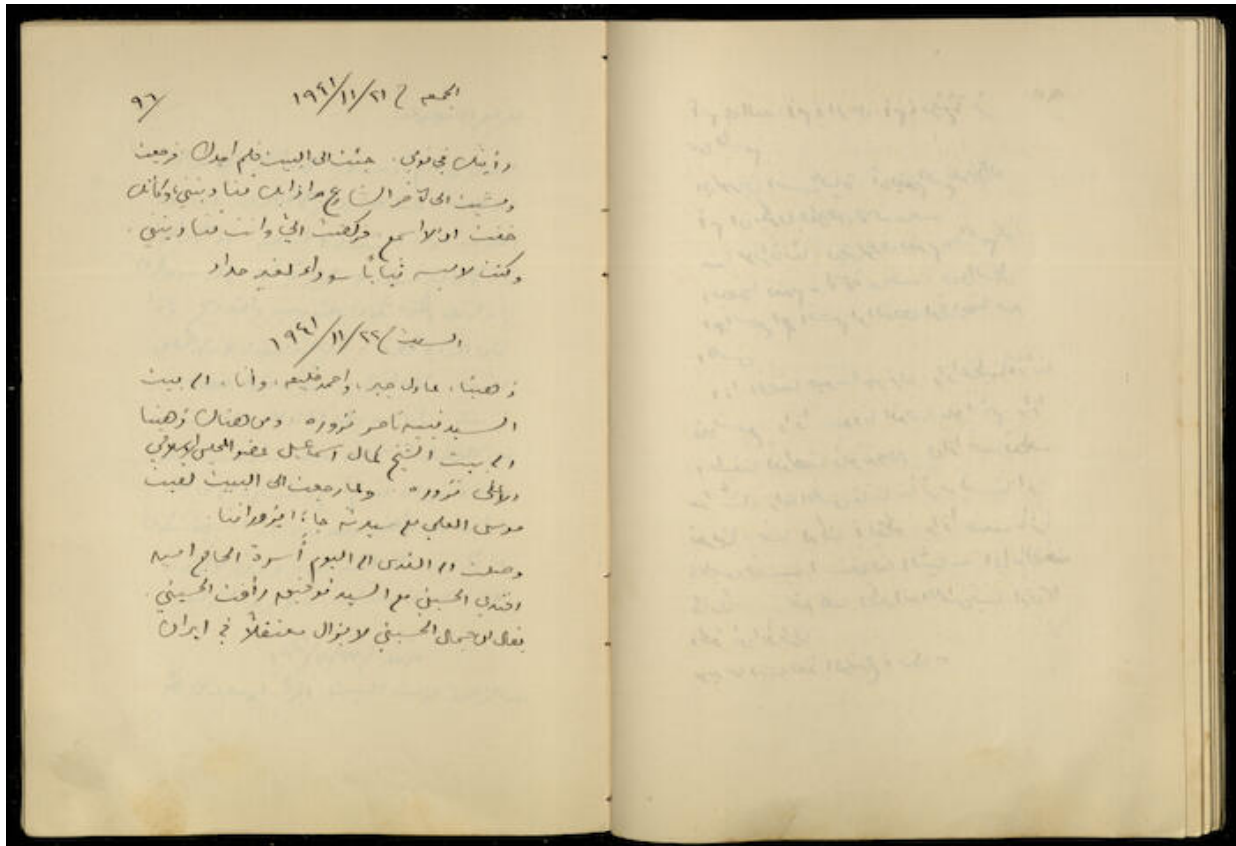 ٩٦/
الجمعه / ٢١/١١/١٩٤١
رأيتك في نومي. جئت الى البيت فلم اجدك فرجعت
ومشيت الى آخر الشارع واذا بك تناديني، وكأنك
خفت ان لا اسمع فركضت الي وانت تناديني.
وكنت لابسه ثياباً سوداء لغير حداد
السبت / ٢٢/١١/١٩٤١
ذهبنا، عادل جبر، واحمد خليفه، وانا، الى بيت
السيد ناصر نزوره ومن هناك ذهبنا
الى بيت الشيخ كمال اسماعيل عضو المجلس الاسلامي
الاعلى نزوره ولما رجعت الى البيت لقيت
موسى العلمي مع سيدته جاءا يزوراننا.
وصلت الى القدس اليوم أسرة الحاج امين
افندي الحسيني مع السيد توفيق رأفت الحسيني.
يقال ان جمال الحسيني لا يزال معتقلاً في ايران